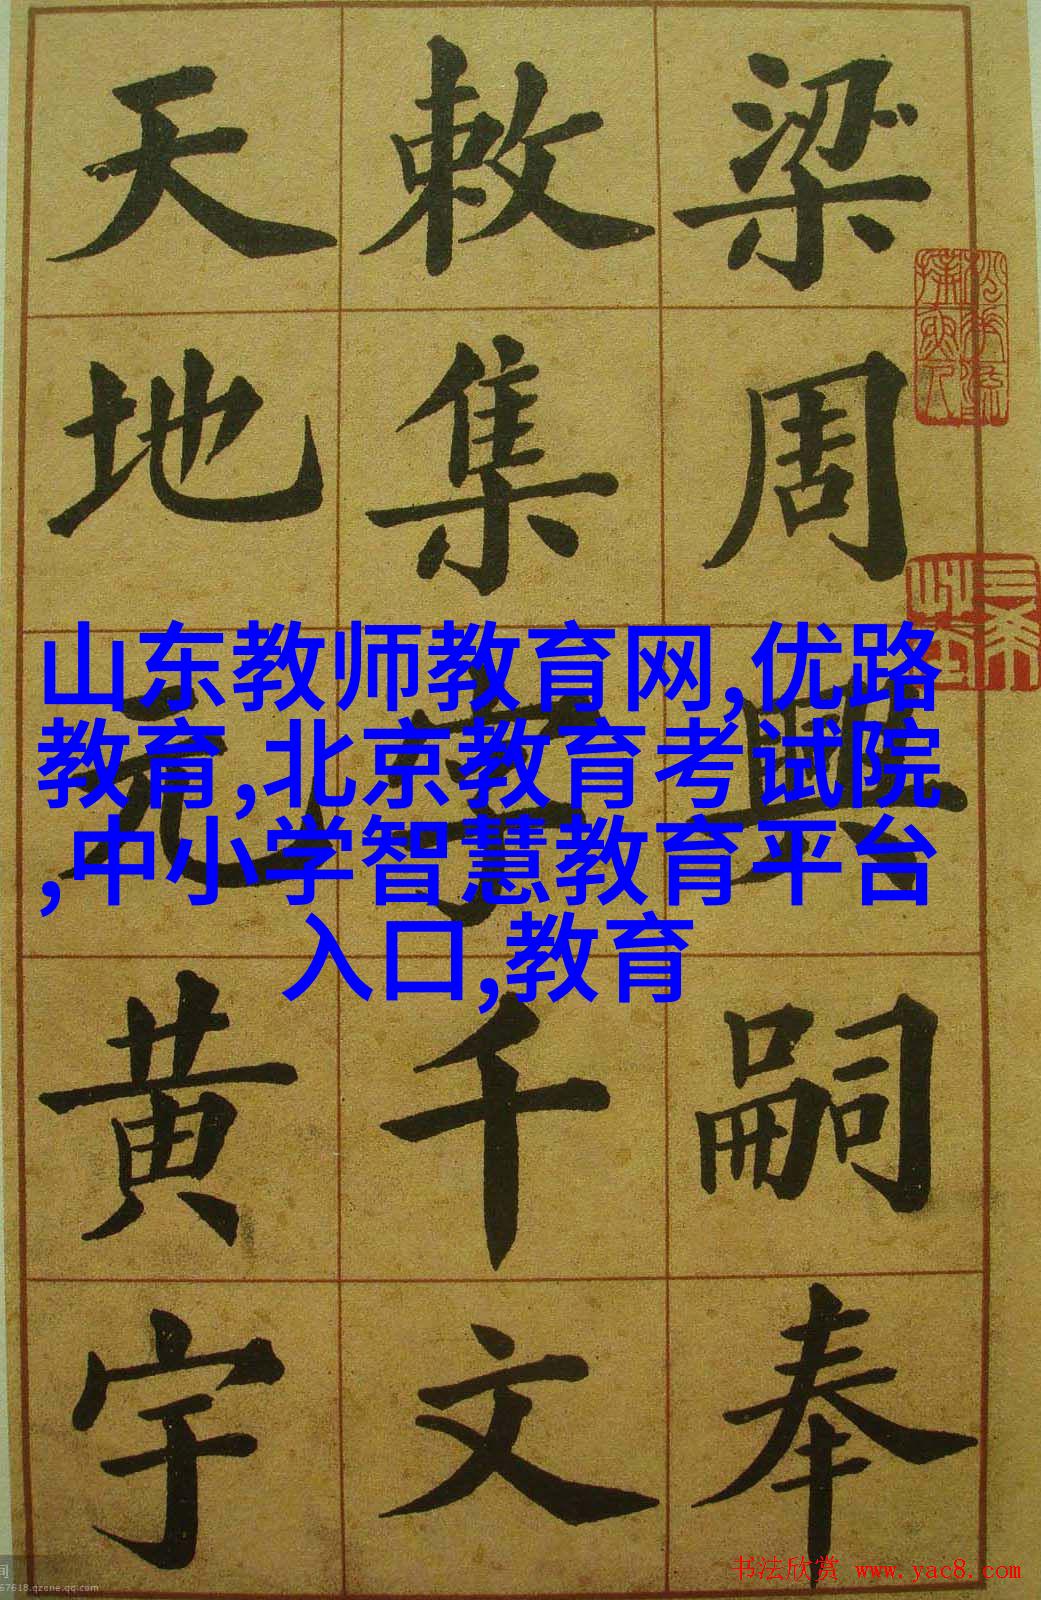 梁周興嗣奉
敕集字千文
天地元黃宇
山东教师教育网,优路
教育,北京教育考试院
,中小学智慧教育平台
入口,教育
书法欣赏 www.yac8.com
间
67618.qzone.qq.com